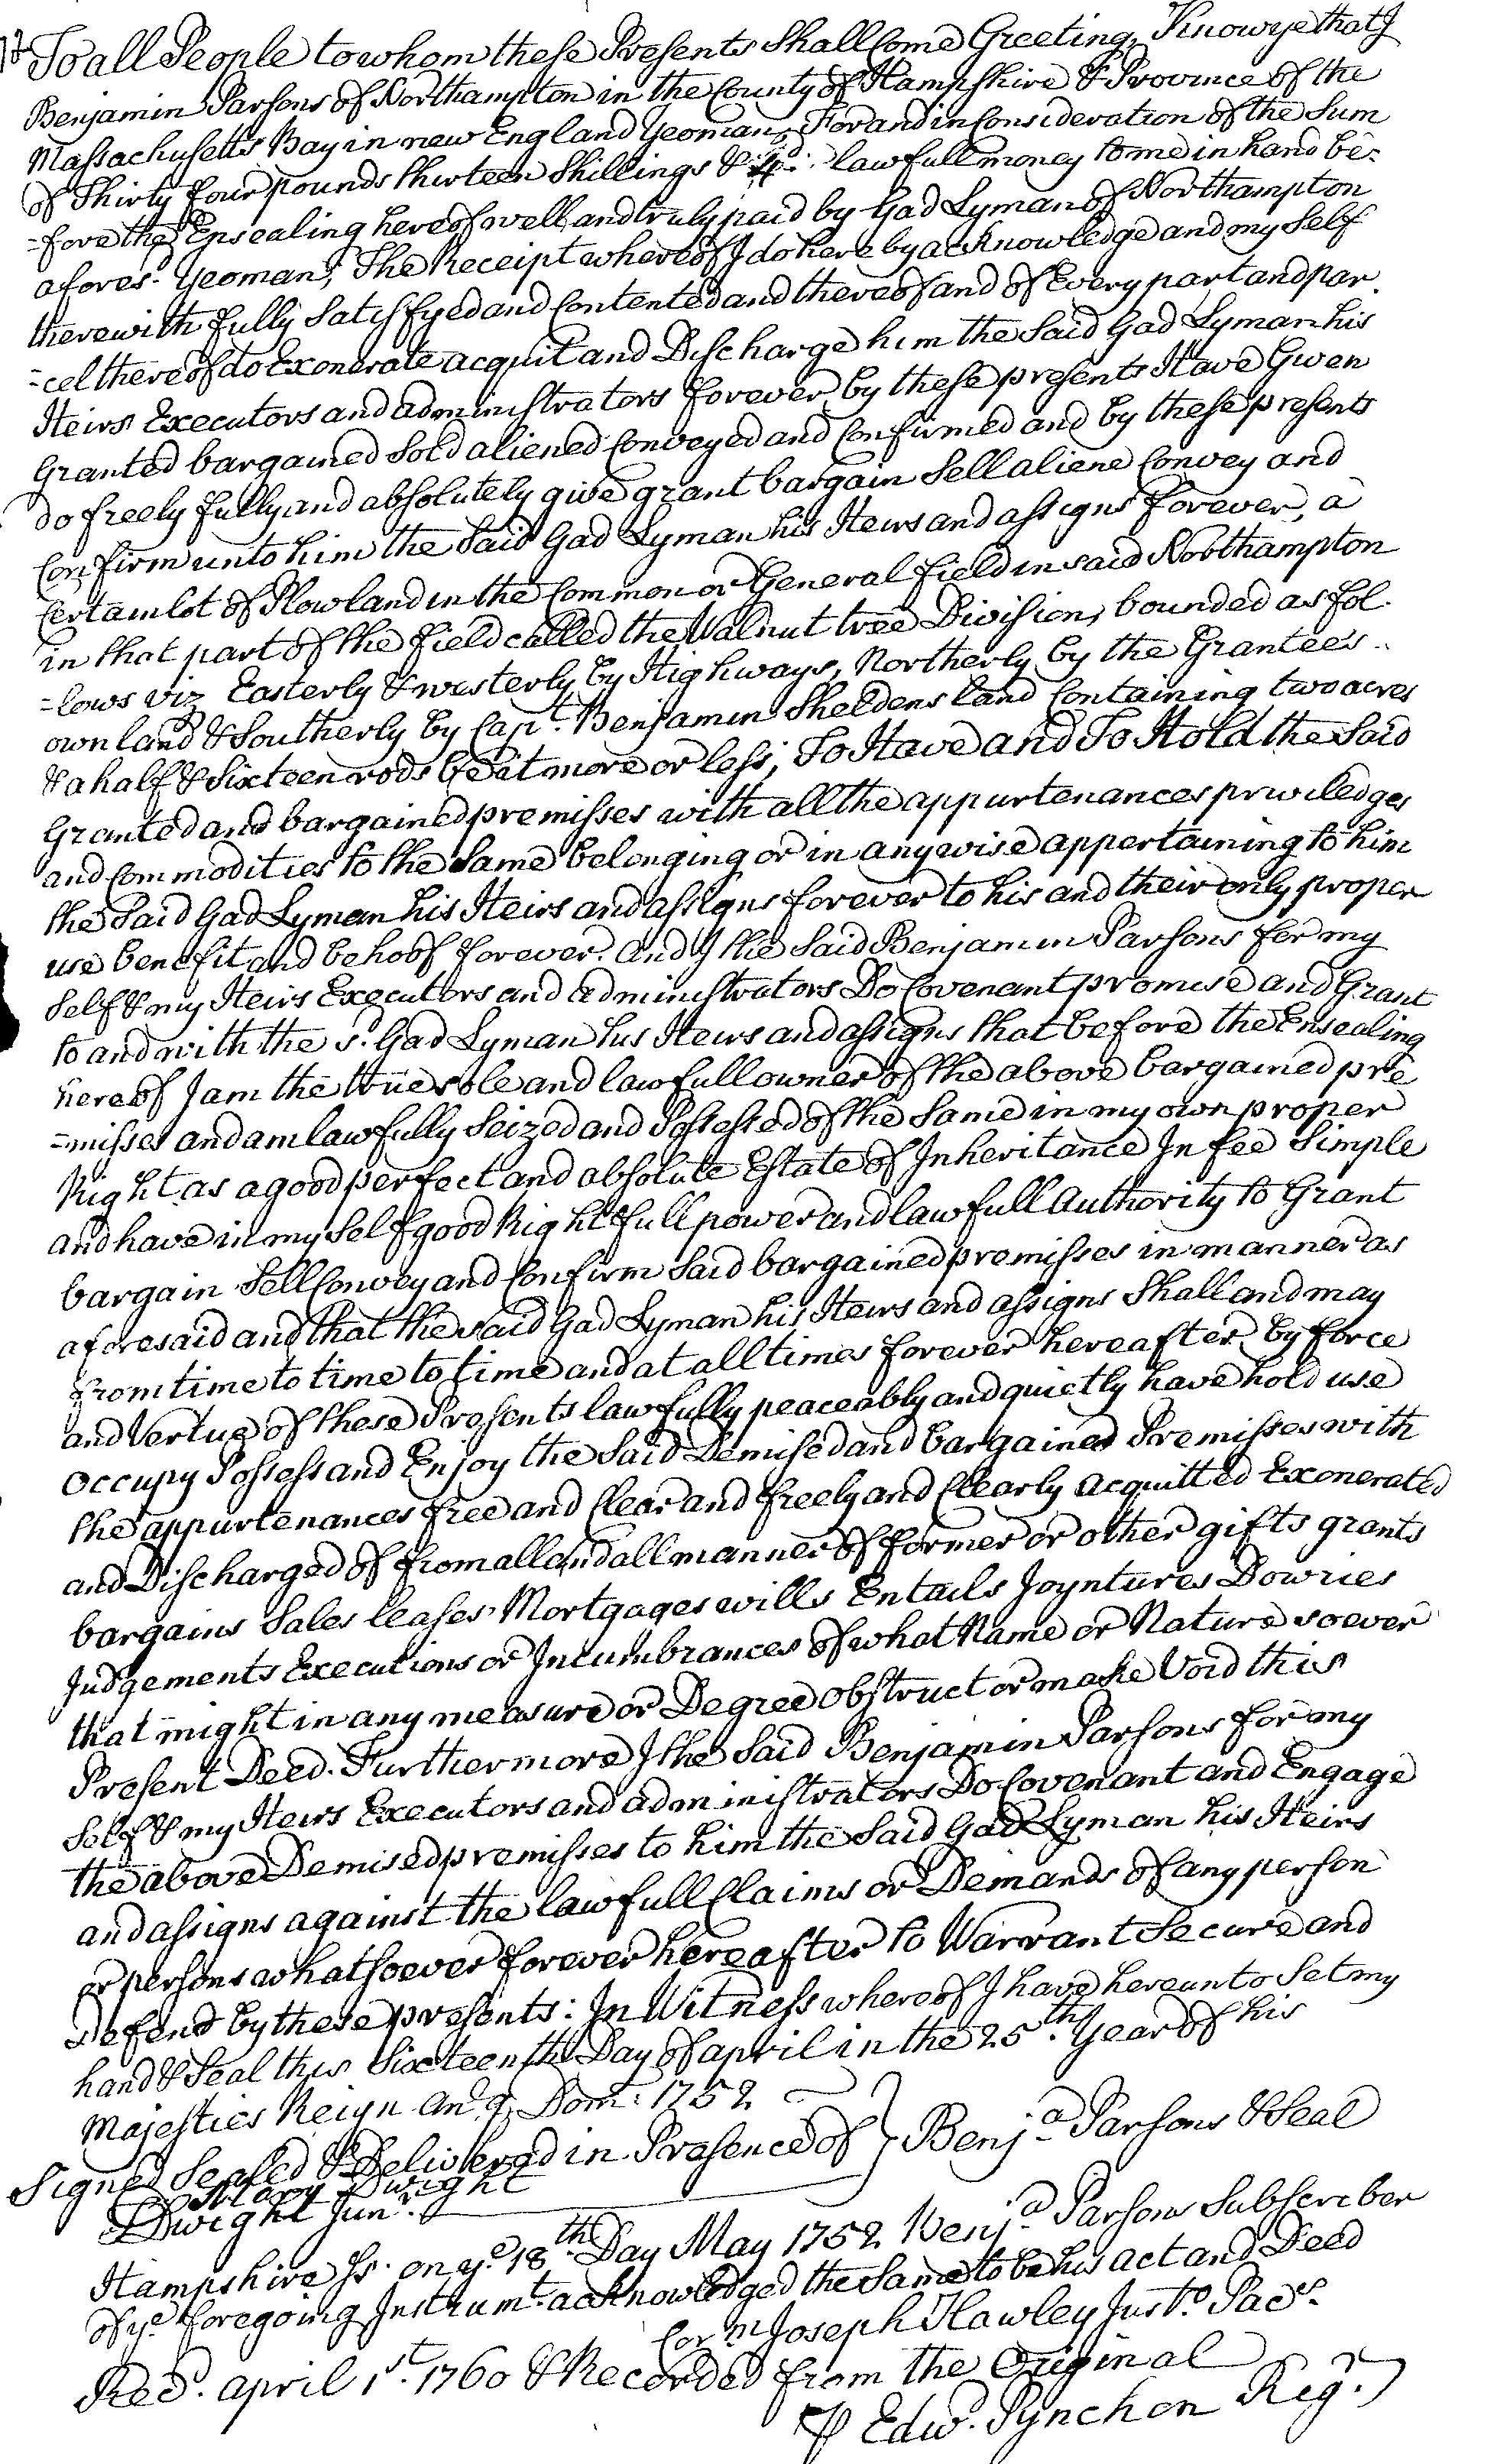 To all People to whom these Presents Shall Come Greeting, Know ye that I
Benjamin Parsons of Northampton in the County of Hampshire & Province of the
Massachusetts Bay in new England Yeoman, For and in Consideration of the Sum
of Thirty four pounds thirteen Shillings & 4d: lawfull money to me in hand be=
=fore the Ensealing hereof well and truly paid by Gad Lyman of Northampton
afores.d Yeoman, The Receipt whereof I do here by acknowledge and my Self
therewith fully Satisfyed and Contented and thereof and of Every part and par
=cel thereof do Exonerate acquit and Discharge him the Said Gad Lyman his
Heirs Executors and administrators forever by these presents Have Given
Granted bargained Sold aliened Conveyed and Confirmed and by these presents
do freely fully and absolutely give grant bargain Sell aliene Convey and
Confirm unto him the Said Gad Lyman his Heirs and assigns forever, a
Certain lot of Plowland in the Common or General field in said Northampton
in that part of the field called the Walnut tree Division, bounded as fol
=lows viz Easterly & westerly by Highways, Northerly by the Grantees
own land & Southerly by Cap.t Benjamin Sheldens land Containing two acres
& a half & Sixteen rods be it more or less, To Have and To Hold the Said
Granted and bargained premisses with all the appurtenances priviledges
and Commodities to the Same belonging or in any wise appertaining to him
the Said Gad Lyman his Heirs and assigns forever to his and their only proper
use benefit and behoof forever. And I the Said Benjamin Parsons for my
Self & my Heirs Executors and administrators Do Covenant promise and Grant
to and with the s.d Gad Lyman his Heirs and assigns that before the Ensealing
hereof I am the true sole and lawfull owner of the above bargained pre
=misses and am lawfully Seized and Possessed of the Same in my own proper
Right as a good perfect and absolute Estate of Inheritance In fee Simple
and have in my Self good Right full power and lawfull Authority to Grant
bargain Sell Convey and Confirm Said bargained premisses in manner as
aforesaid and that the said Gad Lyman his Heirs and assigns Shall and may
from time to time to time and at all times forever hereafter by force
and Vertue of these Presents lawfully peaceably and quietly have hold use
occupy Possess and Enjoy the Said Demised and bargained Premisses with
the appurtenances free and Clear and freely and Clearly acquitted Exonerated
and Discharged of from all and all manner of former or other gifts grants
bargains Sales leases Mortgages wills Entails Joyntures Dowries
Judgements Executions or Incumbrances of what Name or Nature soever
that might in any measure or Degree obstruct or make Void this
Present Deed. Furthermore I the Said Benjamin Parsons for my
Self & my Heirs Executors and administrators Do Covenant and Engage
the above Demised premisses to him the Said Gad Lyman his Heirs
and assigns against the lawfull Claims or Demands of any person
or persons whatsoever forever hereafter to Warrant Secure and
Defend by these presents: In Witness whereof I have hereunto Set my
hand & Seal this Sixteenth Day of april in the 25.th Year of his
Majesties Reign An.o q. Dom: 1752
Signed Sealed & Delivered in Presence of } Benj.a Parsons & Seal
Mary Dwight
Dwight Jun.r
Hampshire Ss. on y.e 18.th Day May 1752 Benj.a Parsons Subscriber
of y.e foregoing Instrum.t acknowledged the Same to be his act and Deed
Cor.m Joseph Hawley Just.o Pac.s
Rec.d April 1.st 1760 & Recorded from the Original
P Edw.d Pynchon Reg.r